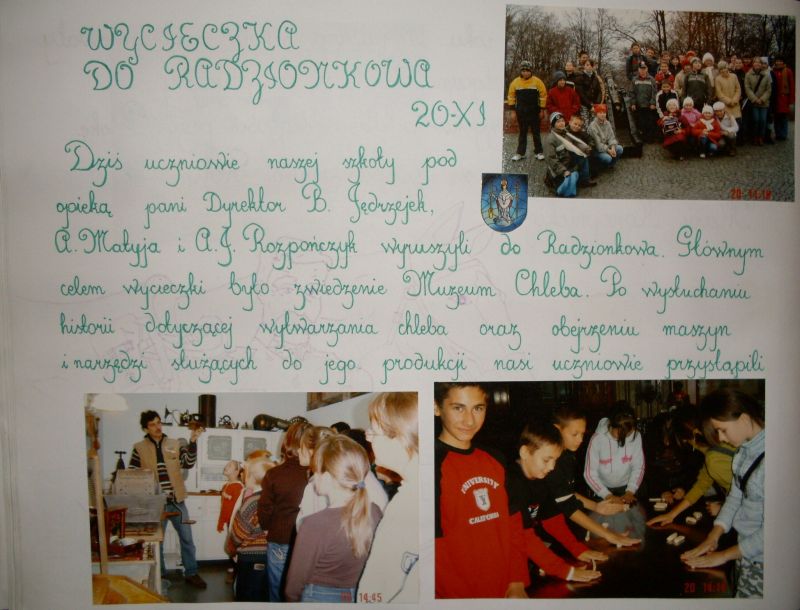 WYCIECZKA
DO RADZIONKOWA
20-XI
Dziś uczniowie naszej szkoły pod
opieką pani Dyrektor B. Jędrzejek,
A. Matyja i A.J. Rozpończyk wyruszyli do Radzionkowa. Głównym
celem wycieczki było zwiedzenie Muzeum Chleba. Po wysłuchaniu
historii dotyczącej wytwarzania chleba oraz obejrzeniu maszyn
i narzędzi służących do jego produkcji nasi uczniowie przystąpili
20 14:18
14:45
UNIVERSITY
CALIFORNIA
20 14:14